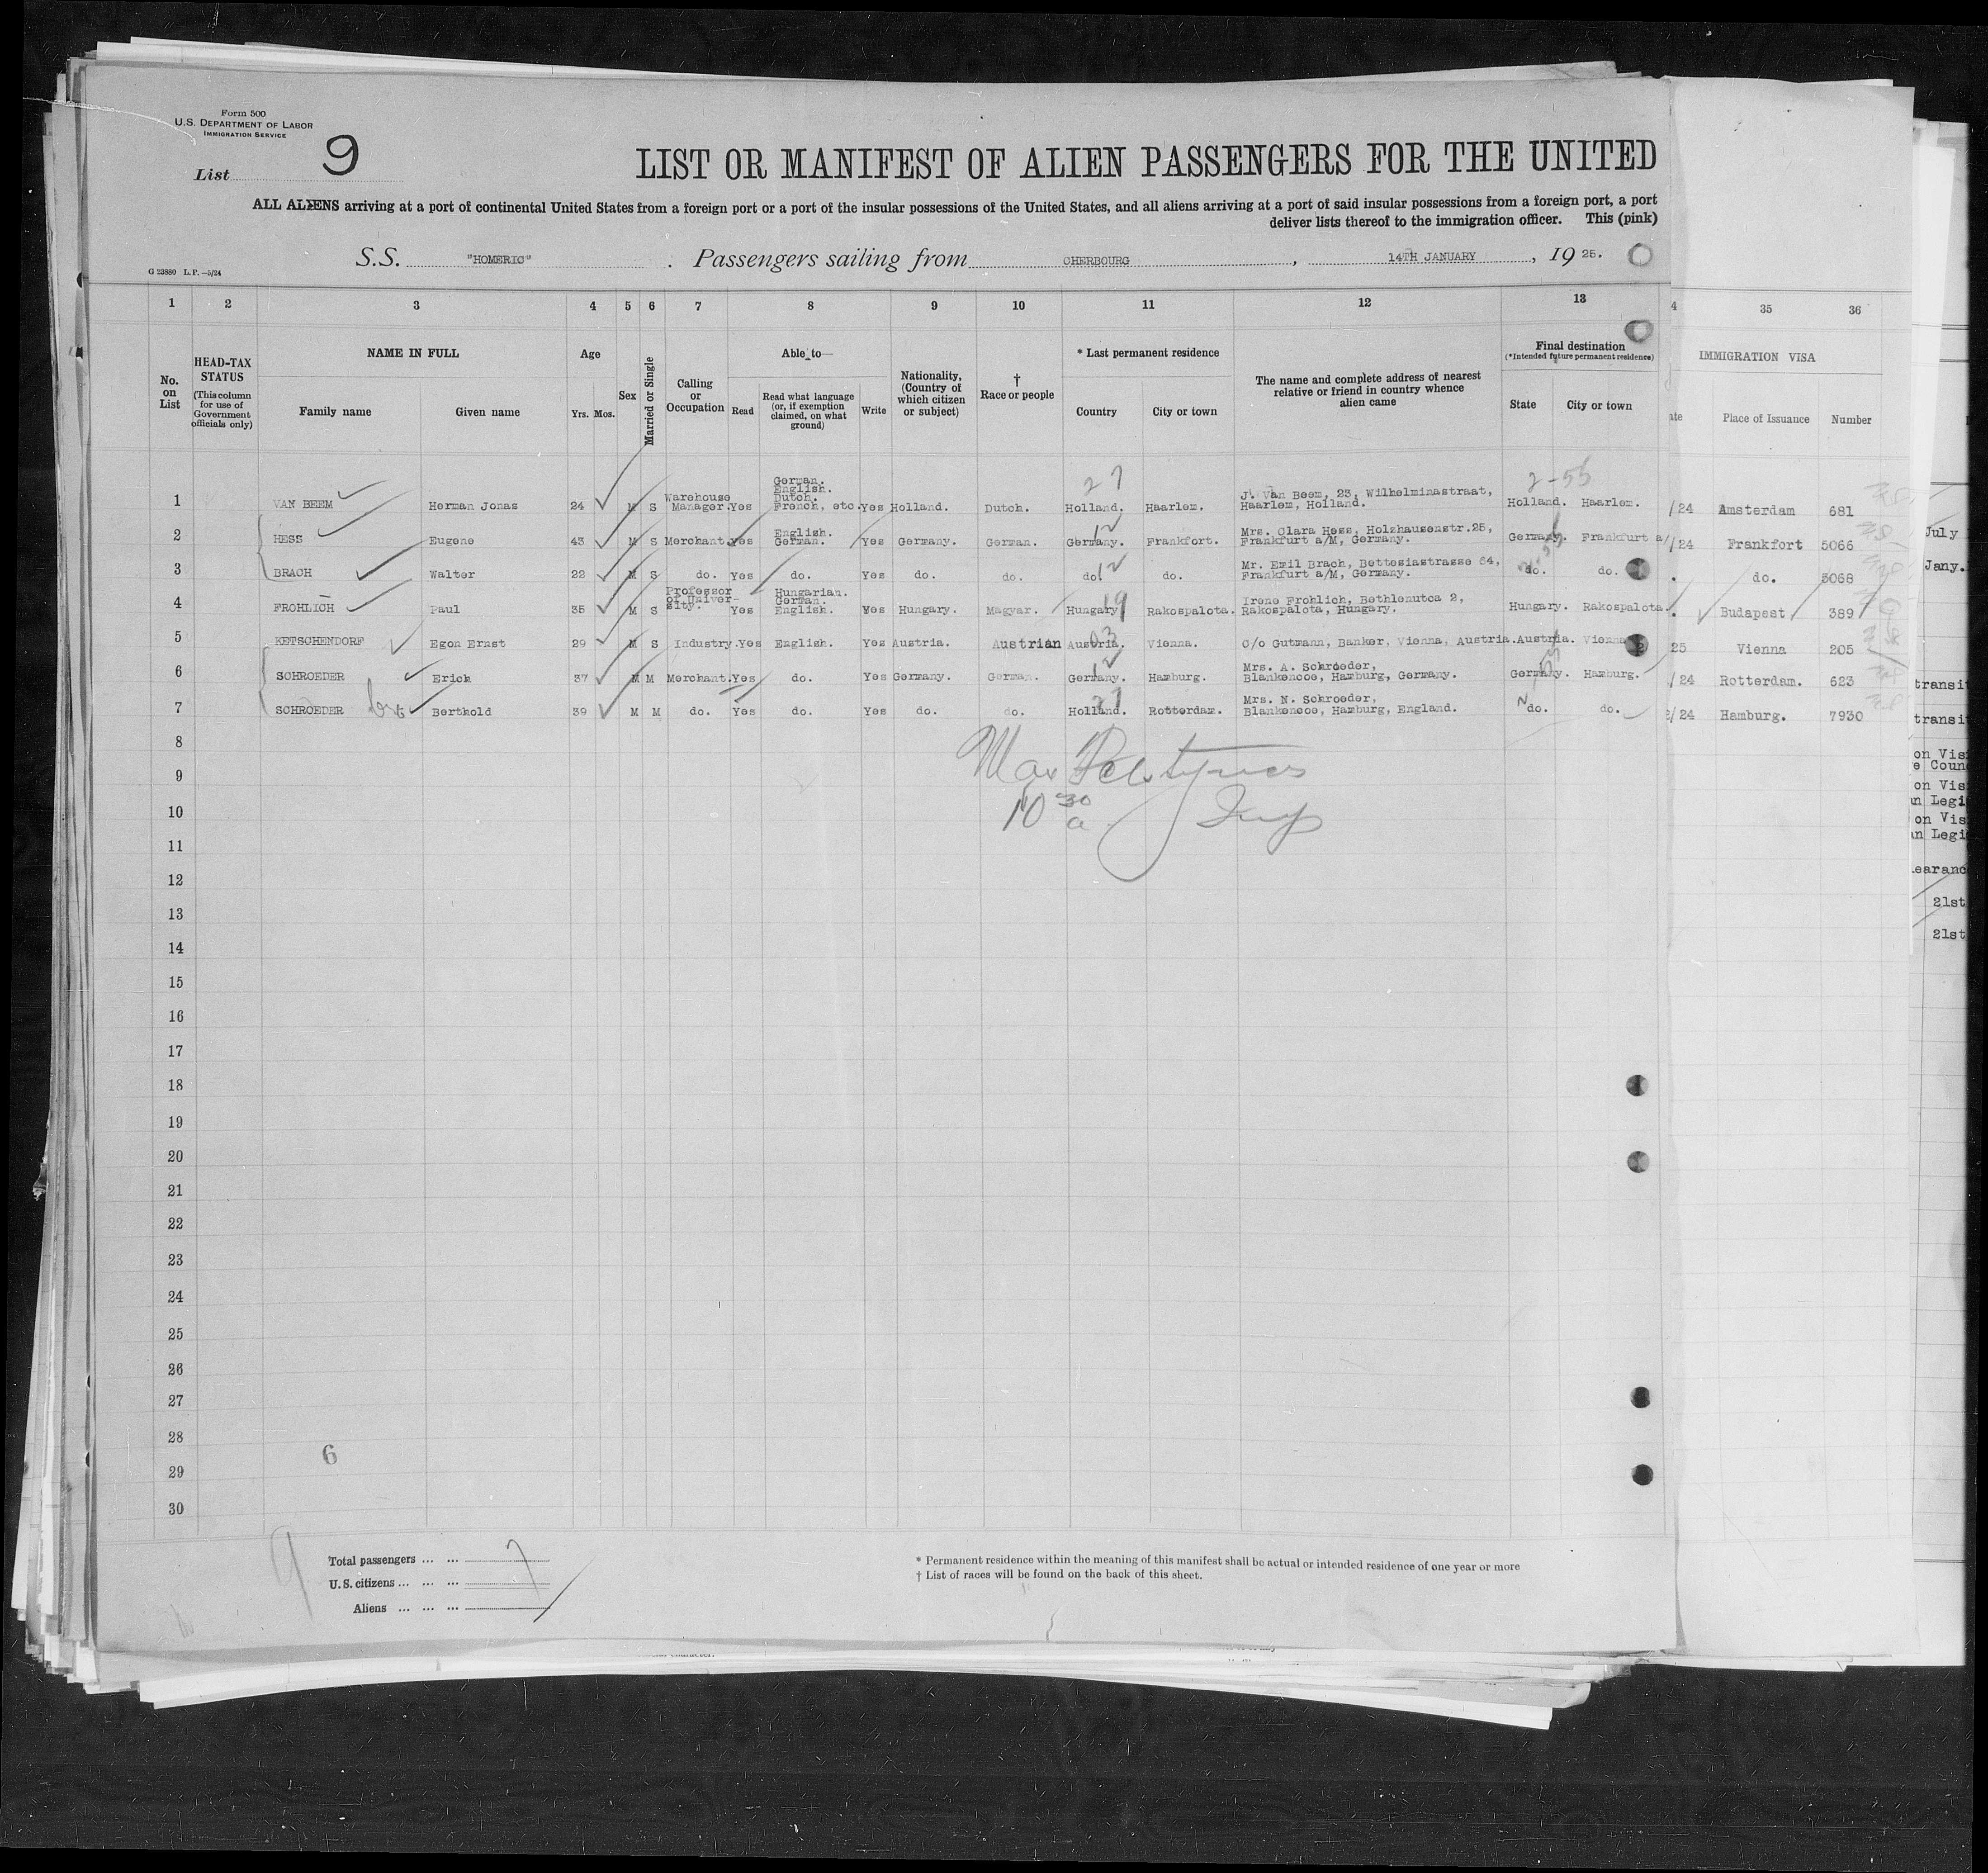 Form 500
U.S. DEPARTMENT OF LABOR
IMMIGRATION SERVICE
List 9
LIST OR MANIFEST OF ALIEN PASSENGERS FOR THE UNITED
ALL ALIENS arriving at a port of continental United States from a foreign port or a port of the insular possessions of the United States, and all aliens arriving at a port of said insular possessions from a foreign port, a port
deliver lists thereof to the immigration officer. This (pink)
G 23880 L.P.—5/24
S.S. "HOMERIC". Passengers sailing from CHERBOURG, 14TH JANUARY, 19 25.
1 2 3 4 5 6 7 8 9 10 11 12 13 4 35 36
No. on List
HEAD-TAX STATUS (This column for use of Government officials only)
NAME IN FULL
Family name Given name
Age
Yrs. Mos.
Sex
Married or Single
Calling or Occupation
Able to—
Read
Read what language (or, if exemption claimed, on what ground)
Write
Nationality, (Country of which citizen or subject)
† Race or people
* Last permanent residence
Country City or town
The name and complete address of nearest relative or friend in country whence alien came
Final destination
(*Intended future permanent residence)
State City or town
IMMIGRATION VISA
ate Place of Issuance Number
27 2-55
1 VAN BEEM Herman Jonas 24 M S Warehouse Manager. Yes German. English. Dutch. French, etc. Yes Holland. Dutch. Holland. Haarlem. J. Van Beem, 23, Wilhelminastraat, Haarlem, Holland. Holland. Haarlem. /24 Amsterdam 681
2 HESS Eugene 43 M S Merchant. Yes English. German. Yes Germany. German. Germany. 12 Frankfort. Mrs. Clara Hess, Holzhausenstr.25, Frankfurt a/M, Germany. Germany. Frankfurt a/ /24 Frankfort 5066
3 BRACH Walter 22 M S do. Yes do. Yes do. do. do. 12 do. Mr. Emil Brach, Bettesiastrasse 64, Frankfurt a/M, Germany. do. do. do. 5068
4 FROHLICH Paul 35 M S Professor of University. Yes Hungarian. German. English. Yes Hungary. Magyar. Hungary 19 Rakospalota. Irene Frohlich, Bethlenutca 2, Rakospalota, Hungary. Hungary. Rakospalota. Budapest 389
5 KETSCHENDORF Egon Ernst 29 M S Industry. Yes English. Yes Austria. Austrian Austria. 03 Vienna. C/o Gutmann, Banker, Vienna, Austria. Austria. Vienna 25 Vienna 205
6 SCHROEDER Erich 37 M M Merchant. Yes do. Yes Germany. German. Germany. 12 Hamburg. Mrs. A. Schroeder, Blankencoe, Hamburg, Germany. Germany. Hamburg. /24 Rotterdam. 623
7 SCHROEDER Berthold 39 M M do. Yes do. Yes do. do. Holland. 27 Rotterdam. Mrs. N. Schroeder, Blankencoe, Hamburg, England. do. do. 2/24 Hamburg. 7930
8
9
10
10 30 a
11
12
13
14
15
16
17
18
19
20
21
22
23
24
25
26
27
28
29
30
6
9
Total passengers ... ... 7
U.S. citizens ... ... ...
Aliens ... ... ...
* Permanent residence within the meaning of this manifest shall be actual or intended residence of one year or more
† List of races will be found on the back of this sheet.
July
Jany.
transit
transit
on Vis
e Coun
on Vis
n Legi
on Vis
an Legi
earanc
21st
21st